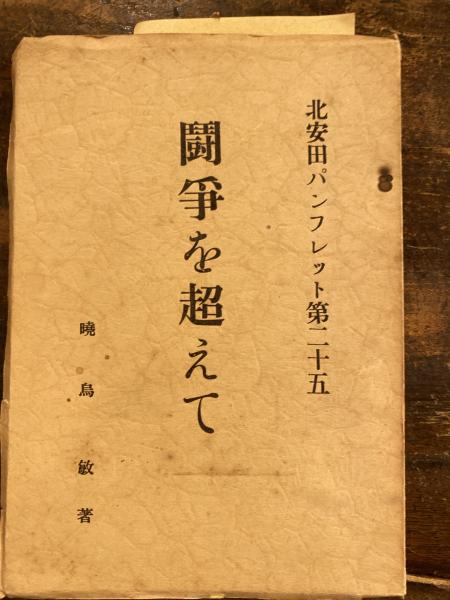 北安田パンフレット第二十五
鬪爭を超えて
曉烏敏著